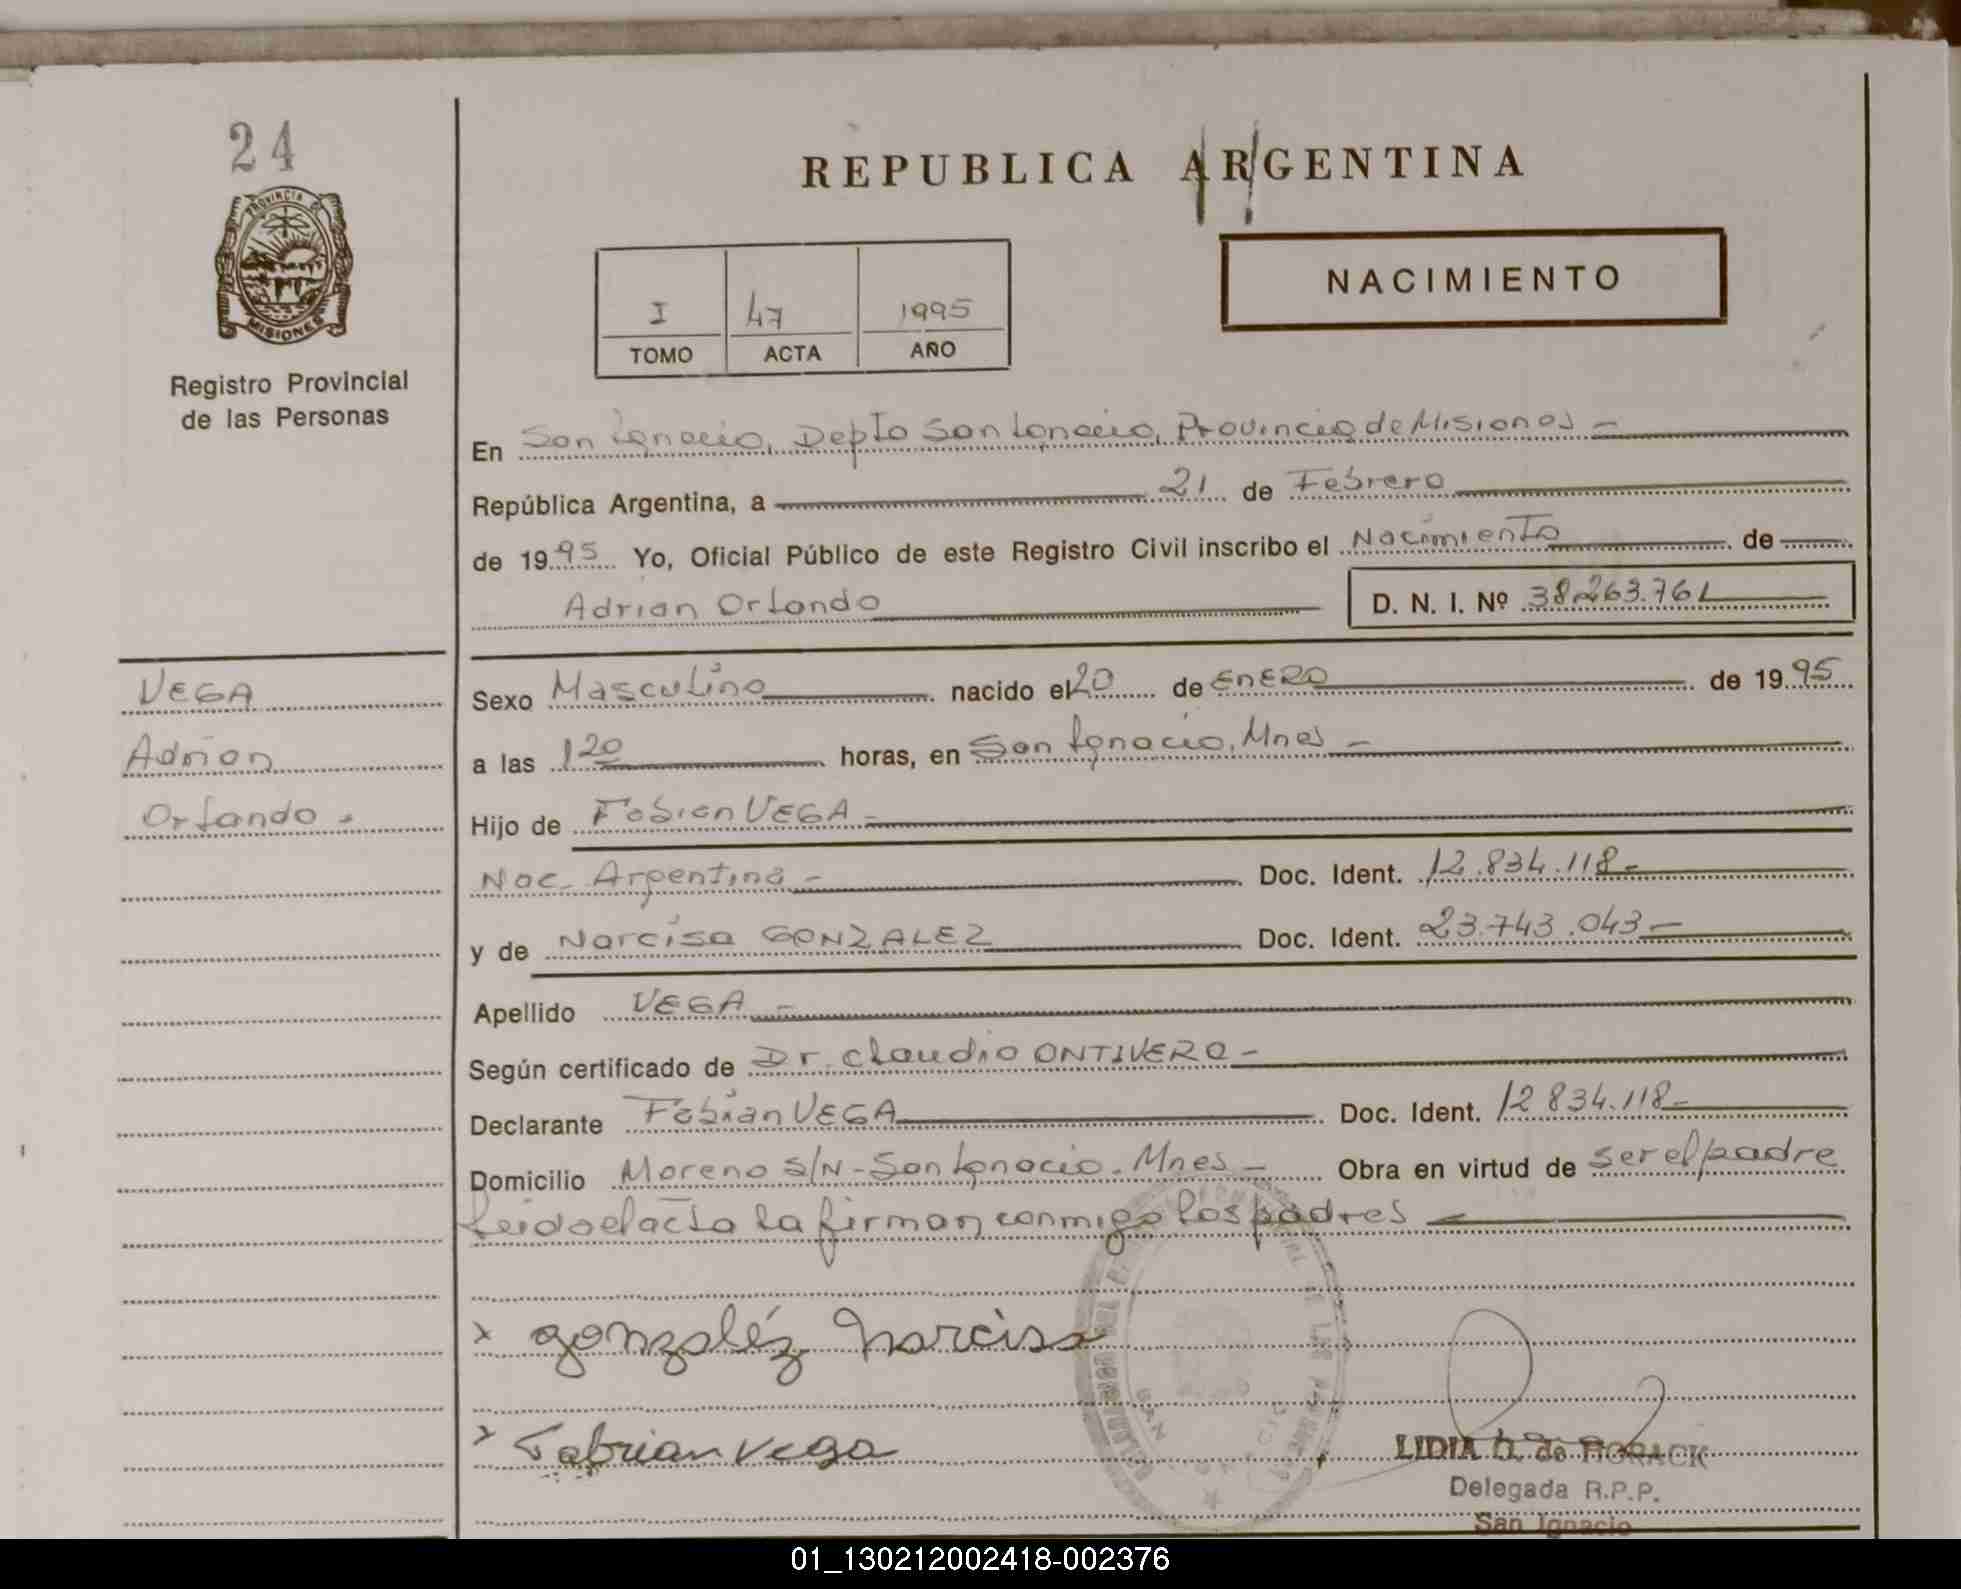 24
PROVINCIA DE
MISIONES
Registro Provincial
de las Personas
REPUBLICA ARGENTINA
NACIMIENTO
I 47 1995
TOMO ACTA AÑO
En San Ignacio, Depto San Ignacio, Provincia de Misiones -
República Argentina, a 21 de Febrero
de 1995 Yo, Oficial Público de este Registro Civil inscribo el Nacimiento de
Adrian Orlando D. N. I. Nº 38.263.761
VEGA
Adrian
Orlando -
Sexo Masculino nacido el 20 de ENERO de 1995
a las 1 20 horas, en San Ignacio, Mnes -
Hijo de Fabian VEGA -
Nac. Argentina - Doc. Ident. 12.834.118-
y de Narcisa GONZALEZ Doc. Ident. 23.743.043-
Apellido VEGA -
Según certificado de Dr. Claudio ONTIVERO -
Declarante Fabian VEGA Doc. Ident. 12 834.118-
Domicilio Moreno S/N - San Ignacio. Mnes - Obra en virtud de ser el padre
Leido el acta la firman conmigo los padres
x gonzaléz Narcisa
x Fabrian vega
LIDIA de HORACK
Delegada R.P.P.
San Ignacio
01_130212002418-002376